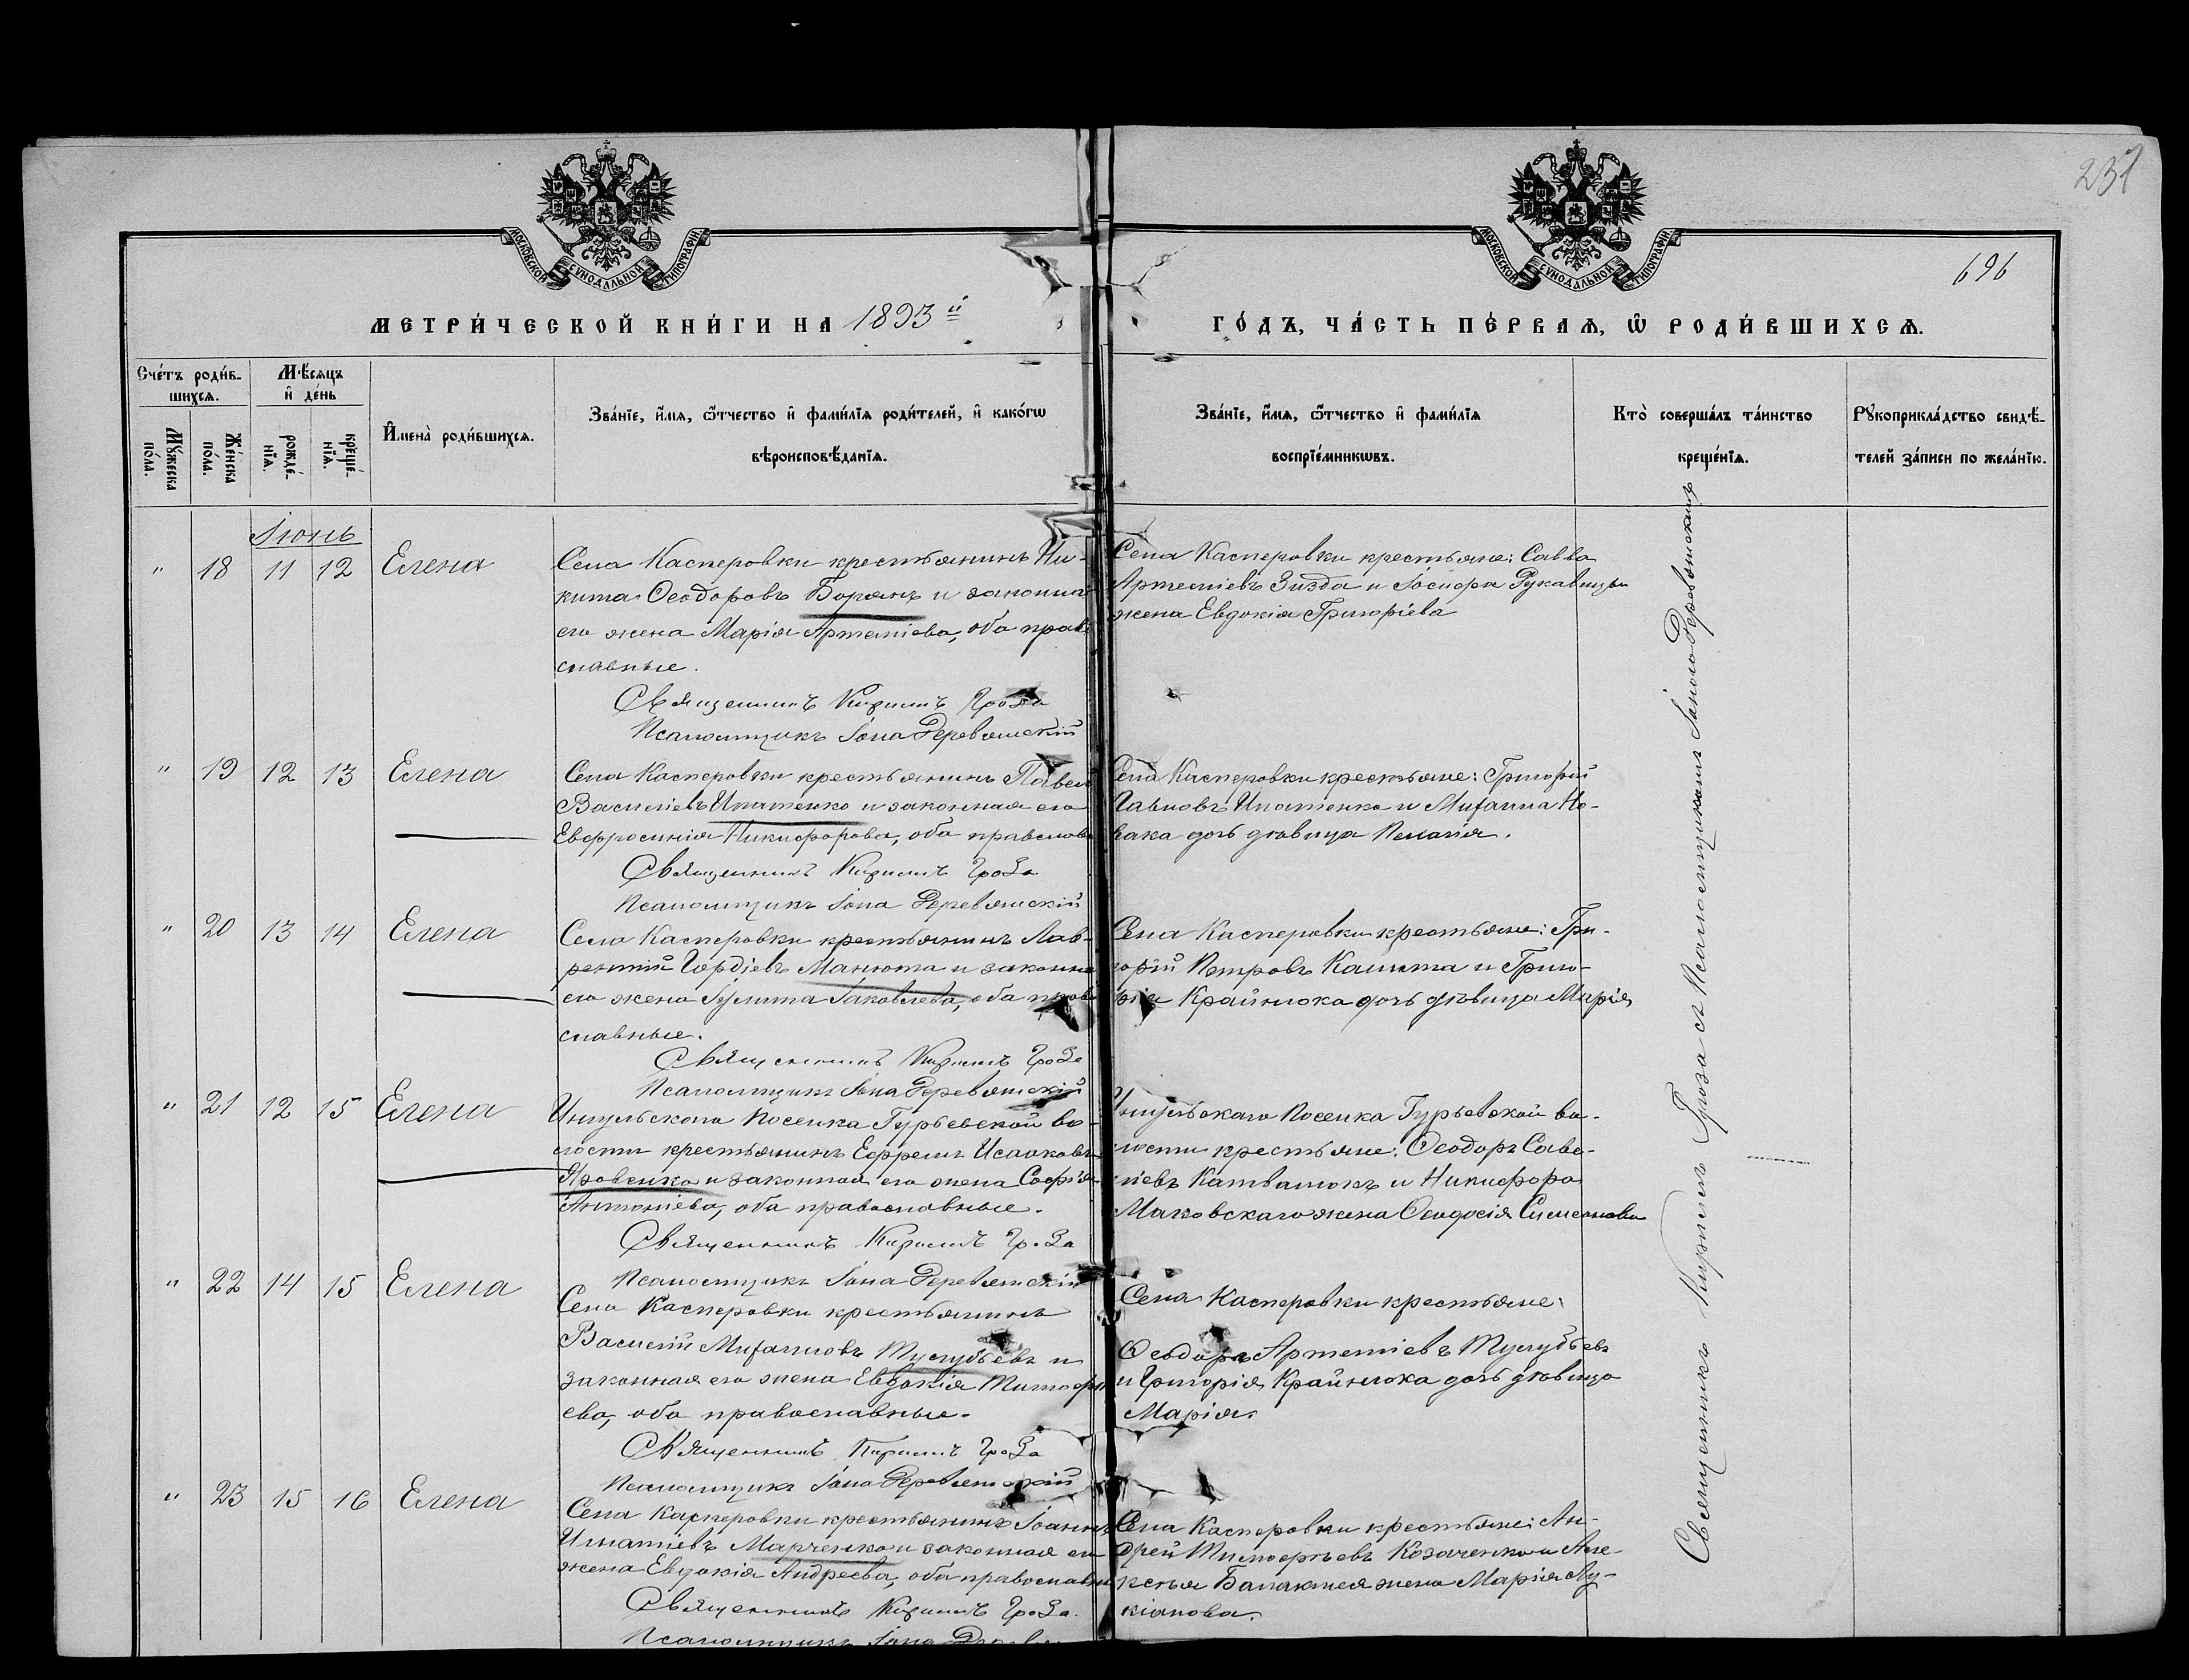 237
696
МОСКОВСКОЙ СѴНОДАЛЬНОЙ ТИПОГРАФІИ
МОСКОВСКОЙ СѴНОДАЛЬНОЙ ТИПОГРАФІИ
МЕТРИ́ЧЕСКОЙ КНИ́ГИ НА 1893й
ГО́ДЪ, ЧА́СТЬ ПЕ́РВАѦ, Ѡ РОДИ́ВШИХСѦ.
Сче́тъ роди́в-
шихсѧ.
Мѣ́сѧцъ
и де́нь
Мꙋ́жеска
по́ла.
Же́нска
по́ла.
рожде́-
нїѧ.
креще́-
нїѧ.
И҆мена̀ роди́вшихсѧ.
Зва́нїе, и҆́мѧ, ѻ҆́тчество и҆ фами́лїѧ роди́телей, и҆ како́гѡ
вѣроисповѣ́данїѧ.
Зва́нїе, и҆́мѧ, ѻ҆́тчество и҆ фами́лїѧ
воспрїе́мникѡвъ.
Кто̀ соверша́лъ та́инство
креще́нїѧ.
Рꙋкоприкла́дство свидѣ́-
телей за́писи по жела́нїю.
Іюнь
" 18 11 12 Елена
Села Касперовки крестьянинъ Ни-
кита Ѳеодоровъ Борянъ и законная
его жена Марія Артеміева, оба право
славные.
Священникъ Кириллъ Гроза
Псаломщикъ Іона Деревянскій
Села Касперовки крестьяне: Савва
Артеміевъ Зизда и Іосифа Рукавицы
жена Евдокія Григоріева
" 19 12 13 Елена
Села Касперовки крестьянинъ Павелъ
Василіевъ Ипатенко и законная его
Евфросинія Никифорова, оба православ
Священникъ Кириллъ Гроза
Псаломщикъ Іона Деревянскій
Села Касперовки крестьяне: Григорій
Павловъ Ипатенко и Михаила Но-
вака дочь дѣвица Пелагія.
" 20 13 14 Елена
Села Касперовки крестьянинъ Лав-
рентій Гордіевъ Манюта и законна
его жена Іулита Іаковлева, оба право
славные.
Священникъ Кириллъ Гроза
Псаломщикъ Іона Деревянскій
Села Касперовки крестьяне: Гри-
горій Петровъ Калита и Григо-
рія Крайнюка дочь дѣвица Марія
" 21 12 15 Елена
Ингульскаго Поселка Гурьевской во-
лости крестьянинъ Ефремъ Исааковъ
Яровенко и законная его жена Софія
Антоніева, оба православные.
Священникъ Кириллъ Гроза
Псаломщикъ Іона Деревянскій
Ингульскаго Поселка Гурьевской во-
лости крестьяне: Ѳеодоръ Саве-
ліевъ Катвалюкъ и Никифора
Маковскаго жена Ѳеодосія Симеонова
" 22 14 15 Елена
Села Касперовки крестьянинъ
Василій Михаиловъ Тулубьевъ и
законная его жена Евдокія Тимоѳе
ева, оба православные.
Священникъ Кириллъ Гроза
Псаломщикъ Іона Деревянскій
Села Касперовки крестьяне:
Ѳеодоръ Артеміевъ Тулубьевъ
и Григорія Крайнюка дочь дѣвица
Марія.
" 23 15 16 Елена
Села Касперовки крестьянинъ Іоаннъ
Игнатіевъ Марченко и законная его
жена Евдокія Андреева, оба православны
Священникъ Кириллъ Гроза.
Псаломщикъ Іона
Села Касперовки крестьяне: Ан-
дрей Тимоѳеевъ Козаченко и Але-
ксѣя Балакшея жена Марія Лу-
кіанова.
Священникъ Кириллъ Гроза съ Псаломщикомъ Іоною Деревянскимъ